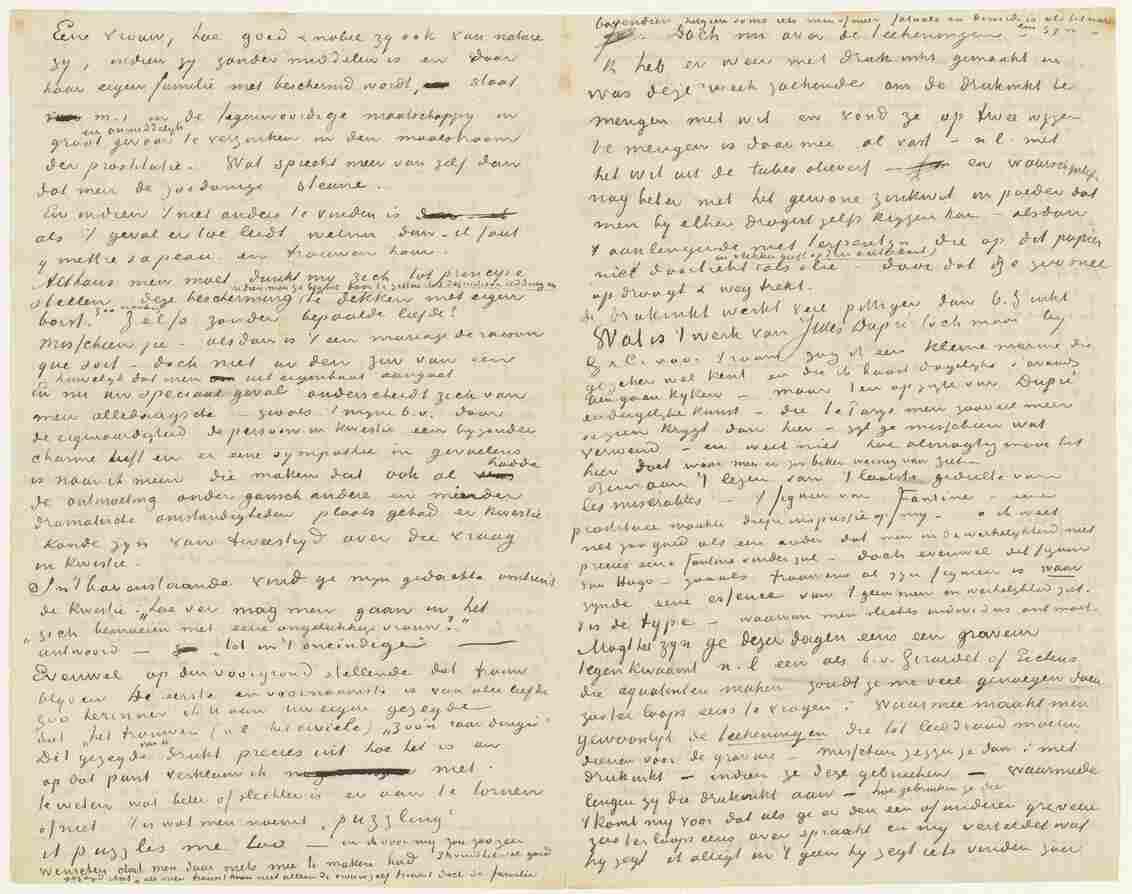 Eene vrouw, hoe goed & nobel zij ook van natuur
zij, indien zij zonder middelen is en door
haar eigen familie niet beschermd wordt, staat
m.i. in de tegenwoordige maatschappij in
groot en onmiddelijk gevaar te verzinken in den maalstroom
der prostitutie. Wat spreekt meer van zelf dan
dat men de zoodanige steune.
En indien 't niet anders te vinden is
als 't geval er toe leidt welnu dan – il faut
y mettre sa peau en trouwen haar.
Althans men moet dunkt mij zich tot principe
stellen deze bescherming
te dekken met eigen
borst. Zelfs zonder bepaalde liefde?
Misschien ja – alsdan is 't een mariage de raison
que soit – doch niet in den zin van een
huwelijk dat men uit eigenbaat aangaat
En nu uw speciaal geval onderscheidt zich van
meer alledaagsche – zooals 't mijne b.v. door
de eigenaardigheid de persoon in kwestie een bijzonder
charme heeft en er eene sympathie in gevoelens
is naar ik meen die maken dat ook al hadde
de ontmoeting onder gansch andere en minder
dramatische omstandigheden plaats gehad er kwestie
konde zijn van tweestrijd over die vraag
in kwestie.
In 't bovenstaande vind ge mijn gedachte omtrent
de kwestie: „hoe ver mag men gaan in het
„zich bemoeien met eene ongelukkige vrouw?"
antwoord – „tot in 't oneindige"
Evenwel op den voorgrond stellende dat trouw
blijven de eerste en voornaamste is van alle liefde
zoo herinner ik u aan uw eigen gezegde
dat „het trouwen (n.l. het civiele) „zoo'n raar ding is"
Dit gezegde van u drukt precies uit hoe het is en
op dat punt verklaar ik niet
te weten wat beter of slechter is er aan te tornen
of niet. 't Is wat men noemt „puzzling"
it puzzles me too – en ik voor mij zou zoo zeer
wenschen dat men daar niets mee te maken had
dat „als men trouwt trouwt men niet alleen de vrouw zelf doch de familie
bovendien", hetgeen soms iets min of meer fataals en
Doch nu over de teekeningen –
Ik heb er weer met drukinkt gemaakt en
was deze week zoekende om de drukinkt te
mengen met wit en vond ze op twee wijzen
te mengen is daar mee al vast – n.l. met
het wit uit de tubes olieverf – en waarschijnlijk
nog beter met het gewone zinkwit in poeder dat
men bij elken drogist zelfs krijgen kan – alsdan
't aanlengende met terpentijn die op dit papier
niet doortrekt als olie – doordat zij zoo gewoonlijk
opdroogt & wegtrekt.
de drukinkt werkt veel pittiger dan b.g. inkt
Wat is 't werk van Jules Dupré toch mooi bij
G&C. voor 't raam zag ik een kleine marine die
ge zeker wel kent en die ik haast dagelijks 's avonds
ben gaan kijken – maar
en dergelijke kunst – die te Parijs men zooveel meer
te zien krijgt dan hier – zijt ge misschien wat
verwend – en weet niet hoe almagtig mooi het
hier doet waar men er zoo bitter weinig van ziet –
Ben aan 't lezen van 't laatste gedeelte van
les misérables – 't figuur van Fantine – eene
prostituee maakte diepe impressie op mij – o ik weet
net zoo goed als een ander dat men in de werkelijkheid niet
precies eene Fantine vinden zal – doch evenwel dit figuur
van Hugo – zooals trouwens al zijn figuren is waar
zijnde eene essence van 't geen men in werkelijkheid ziet.
't is de type – waarvan men slechts individus ontmoet.
Mogt het zijn ge dezer dagen eens een graveur
tegen kwaamt n.l. een als b.v. Girardet of Eeckhout
die aquatinten maken zoudt ge me veel genoegen doen
zoo ter loops eens te vragen: Waarmee maakt men
gewoonlijk de teekeningen die tot leiddraad moeten
dienen voor de gravure – misschien zeggen ze dan: met
drukinkt – indien ze deze gebruiken – waarmede
lengen zij die drukinkt aan – hoe gebruiken ze die
't komt mij voor dat als ge er den een of anderen graveur
zoo ter loops eens over spraakt en mij verteldet wat
hij zegt ik allicht in 't geen hij zegt iets vinden zou